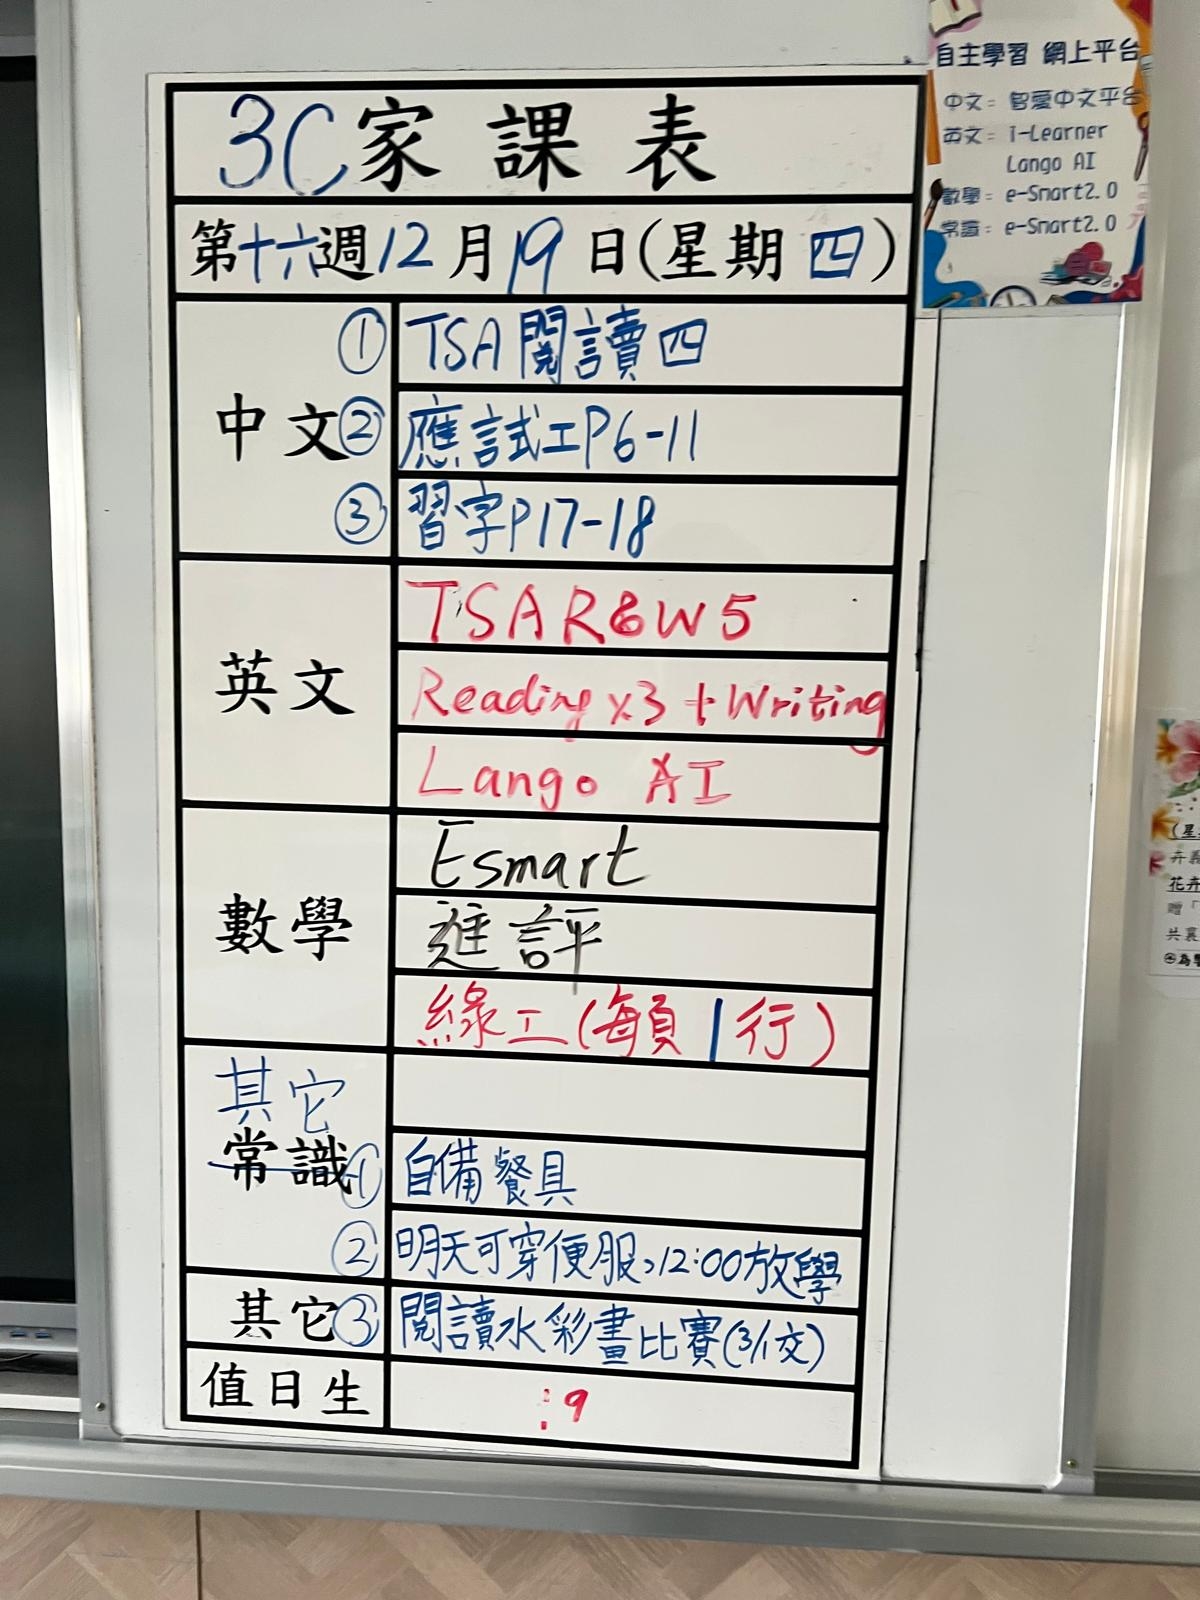 3C家課表
第十六週12月19日(星期四)
中文
① TSA閱讀四
② 應試工P6-11
③ 習字P17-18
英文
TSA R&W 5
Reading x3 + Writing
Lango AI
數學
Esmart
進評
綠工(每頁1行)
其它
常識
① 自備餐具
② 明天可穿便服,12:00放學
其它
③ 閱讀水彩畫比賽(3/1交)
值日生
:9
自主學習 網上平台
中文: 智愛中文平台
英文: i-Learner
Lango AI
數學: e-Smart2.0
常識: e-Smart2.0
(星
卉
花卉
贈「
共襄